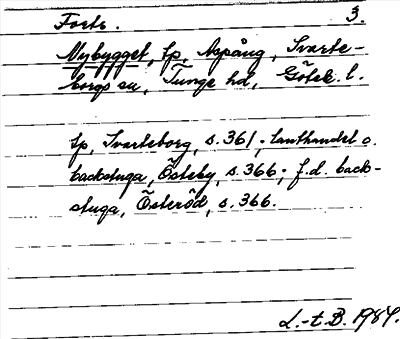 Forts. 3.
Nybygget, lp, Aspång, Svarte-
borgs sn, Tunge hd, Göteb. l.
lp, Svarteborg, s.361; lanthandel o.
backstuga, Östeby, s.366; f.d. back-
stuga, Österöd, s.366.
L.-t.B. 1984.